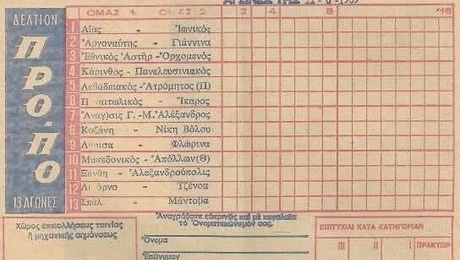 ΔΕΛΤΙΟΝ
ΠΡΟ-ΠΟ
13 ΑΓΩΝΕΣ
ΟΜΑΣ 1 ΟΜΑΣ 2
2 4 8 16
1 Αἴας - Ἰωνικὸς
2 Ἀργοναύτης - Γιάννινα
3 Ἐθνικὸς Ἀστὴρ - Ὀρχομενὸς
4 Κόρινθος - Πανελευσινιακὸς
5 Λεβαδειακὸς - Ἀτρόμητος (Π)
6 Παναιτωλικὸς - Ἴκαρος
7 Ἀναγ)σις Γ. - Μ. Ἀλέξανδρος
8 Κοζάνη - Νίκη Βόλου
9 Λάρισα - Φλώρινα
10 Μακεδονικὸς - Ἀπόλλων (Θ)
11 Ξάνθη - Ἀλεξανδρούπολις
12 Λιβόρνο - Τζένοα
13 Σπὰλ - Μάντοβα
Χῶρος ἐπικολλήσεως ταινίας
ἢ μηχανικῆς σημάνσεως
Ἀναγράψατε εὐκρινῶς καὶ μὲ κεφαλαῖα
τὸ Ὀνοματεπώνυμόν σας.
Ὄνομα
Ἐπώνυμον
ΕΠΙΤΥΧΙΑΙ ΚΑΤΑ ΚΑΤΗΓΟΡΙΑΝ
III II I ΠΡΑΚΤΩΡ